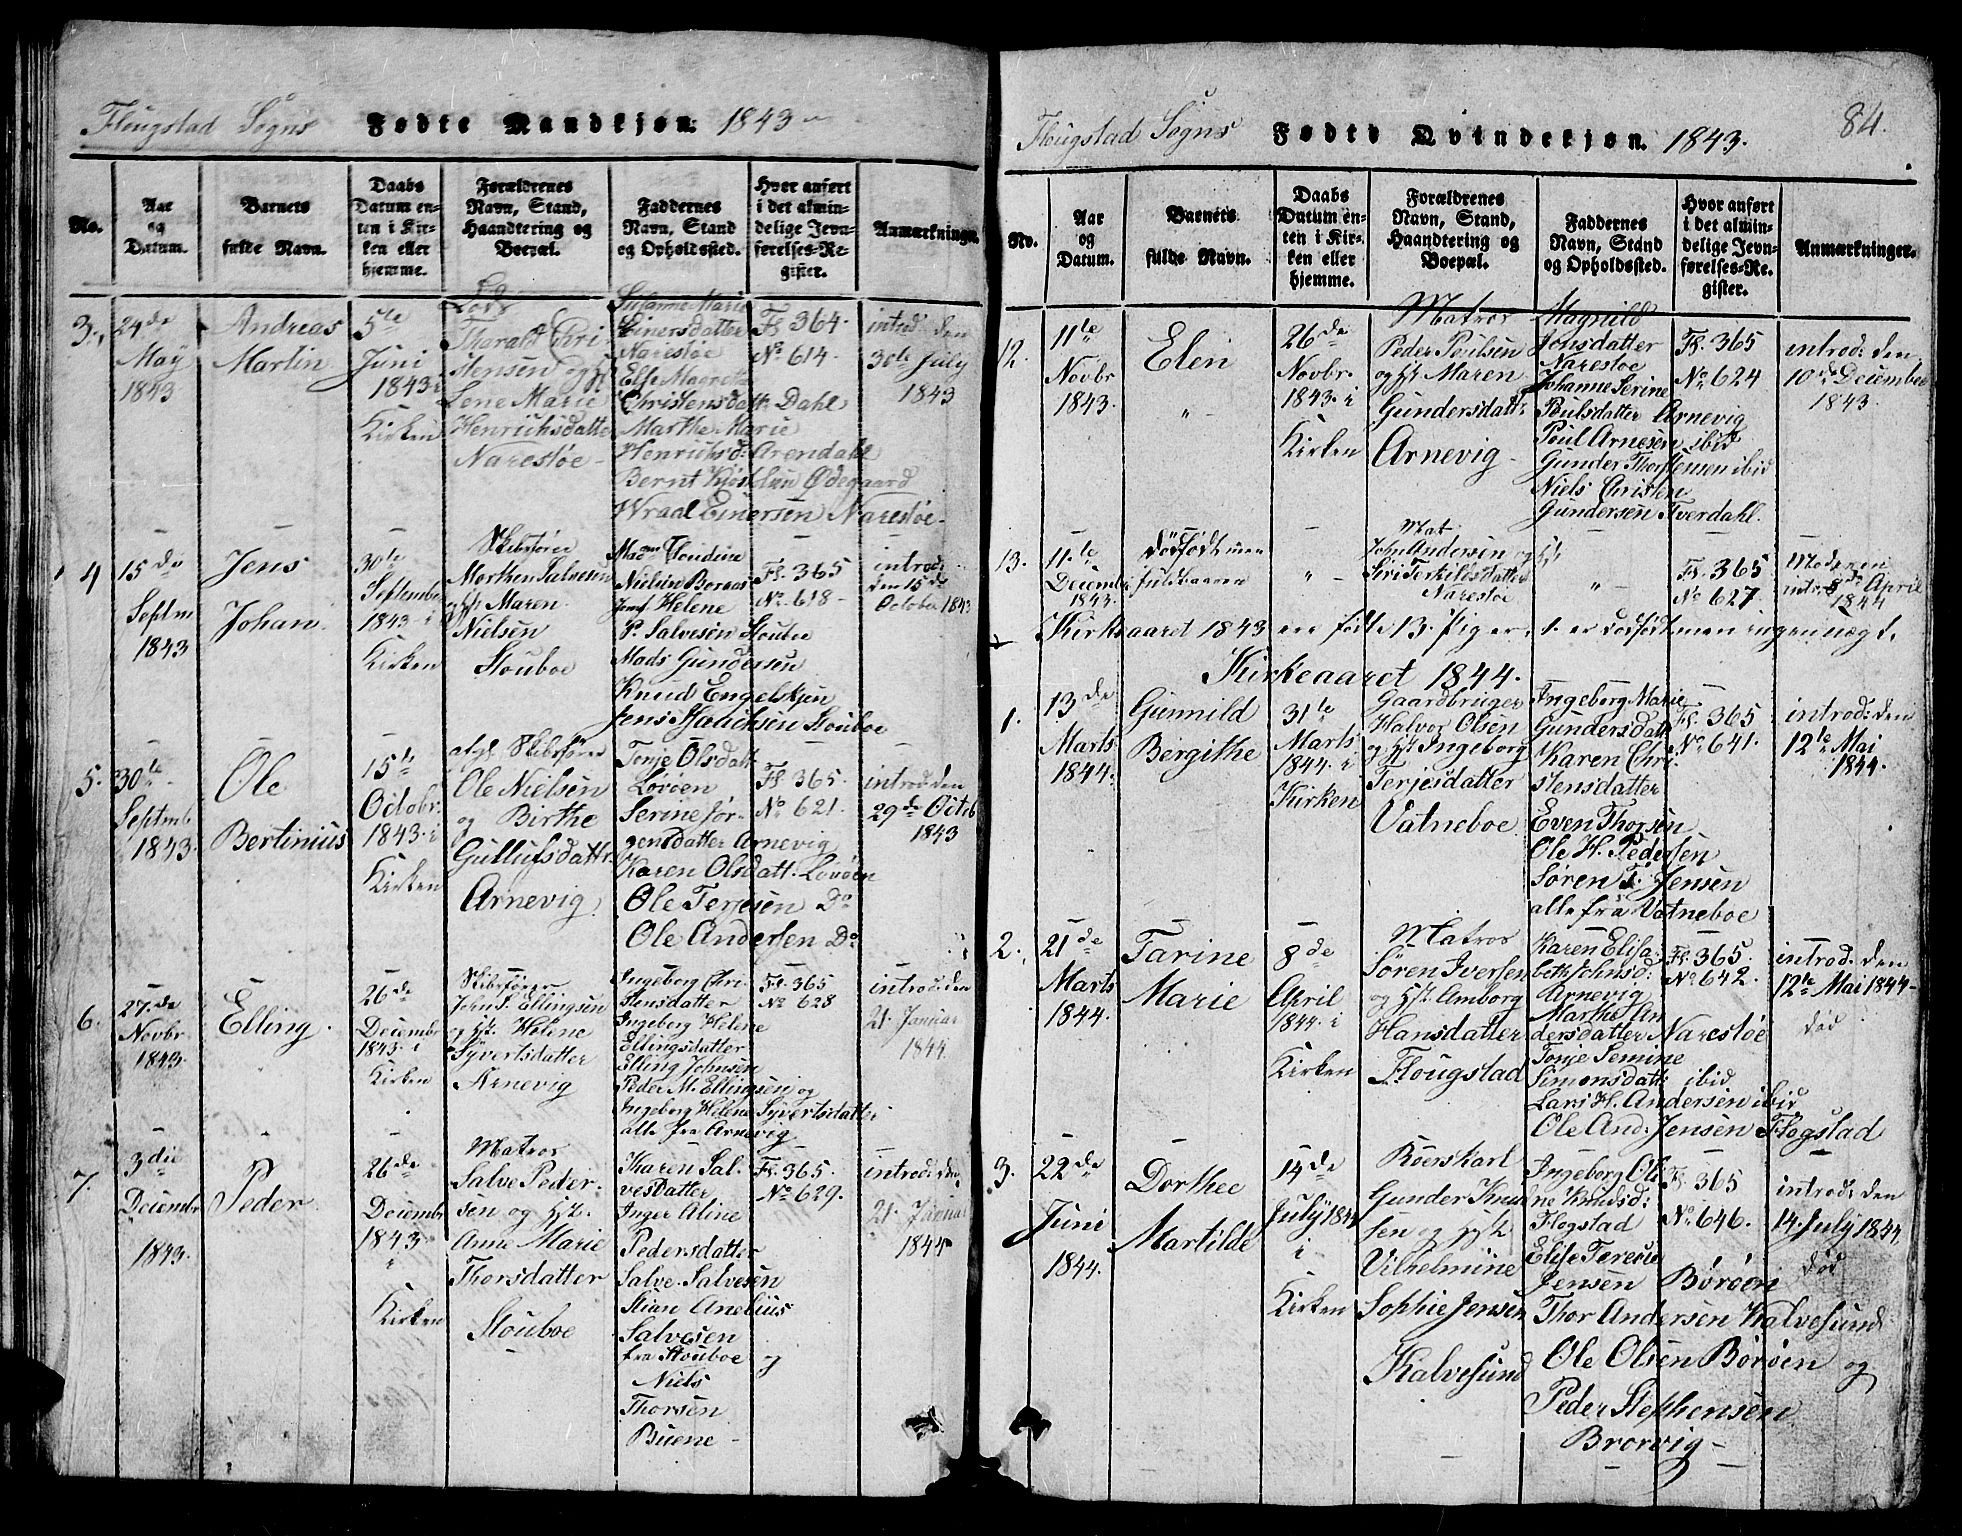 Flougstad Sogns Fødte Mandkjøn. 1843
No.
Aar og Datum.
Barnets fulde Navn.
Daabs Datum enten i Kirken eller hjemme.
Forældrenes Navn, Stand, Haandtering og Boepæl.
Faddernes Navn, Stand og Opholdssted.
Hvor anført i det almindelige Jevnførelses-Register.
Anmærkninger.
3.
24de
May
1843
Andreas
Martin
5te
Juni
1843 i
Kirken
Lods
Tharald Chri
stensen og H
Lene Marie
Henrichsdatter
Narestøe
Susanne Marie
Einersdatter
Narestøe
Else Magrete
Christensdatt: Dahl
Marthe Marie
Henrichsd: Arendahl
Bernt Ødegaard
Wraal Einersen Narestøe
Fl. 364
No 614
introd: den
30te July
1843
4
15de
Septm
1843
Jens
Johan
30te
September
1843 i
Kirken
Skibsfører
Morthen Salvesen
og H: Maren
Nielsen
Stouboe
Madm
Nielsen Boraas
Jomf Helene
P. Salvesen Stouboe
Mads Gundersen
Knud Engelskjen
Jens Isachsen Stouboe
Fl. 365
No 618
introd:
den 15de
October 1843
5.
30te
Septmb
1843
Ole
Bertinius
15de
Octobr.
1843 i
Kirken
afg. Skibsfører
Ole Nielsen
og Birthe
Gullufsdattr.
Arnevig
Tonje Olsdatt
Løvøen
Serine Jør-
gensdatter Arnevig
Karen Olsdatt. Løvøen
Ole Terjesen Do
Ole Andersen Do
Fl. 365.
No 621.
introd: den
29de Octb
1843
6.
27de
Novbr
1843
Elling
26de
Decembr
1843 i
Kirken
Skibsfører
John S. Ellingsen
og H: Helene
Syvertsdatter
Arnevig
Ingeborg Chri
stensdatter
Ingeborg Helene
Ellingsdatter
Elling Johnsen
Peder M. Ellingsen og
Ingeborg Helene Syvertsdatter
alle fra Arnevig
Fl. 365
No 628
introd: den
21. Januar
1844
7.
3die
Decembr
1843.
Peder
26de
Decembr
1843
Kirken
Matros
Salve Peder-
sen og H:
Anne Marie
Thorsdatter
Stouboe
Karen Sal-
vesdatter
Inger Aline
Pedersdatter
Salve Salvesen
Stian Anelius
Salvesen
fra Stouboe og
Niels
Thorsen
Buene
Fl. 365.
No 629.
introd: den
21. Januar
1844
Flougstad Sogns Fødte Qvindekjøn. 1843. 84.
No.
Aar og Datum.
Barnets fulde Navn.
Daabs Datum enten i Kirken eller hjemme.
Forældrenes Navn, Stand, Haandtering og Boepæl.
Faddernes Navn, Stand og Opholdssted.
Hvor anført i det almindelige Jevnførelses-Register.
Anmærkninger.
12.
11te
Novbr
1843.
Elen
26de
Novbr.
1843 i
Kirken
Matros
Peder Poulsen
og H: Maren
Gundersdatt:
Arnevig
Magnild
Johsdatter
Narestoe
Johanne Serine
Poulsdatter Arnevig
Poul Arnesen ibid
Gunder Thorstensen ibid
Niels Christen
Gundersen Tverdahl.
Fl. 365
No 624
introd: den
10de December
1843.
13.
11te
Decembr
1843.
dødfødt men
fuldbaaren
Mat.
John Andersen og H:
Siri Terkildsdatter
Narestøe
Fl. 365
No 627
Moderen
intr: 8de April
1844
I Kirkeaaret 1843 ere fødte 13. Piger, 1. er dødfødt men ingen uægte.
Kirkeaaret 1844.
1.
13de
Marts
1844.
Gunnild
Bergithe
31te
Marts
1844 i
Kirken
Gaardbruger
Halvor Olsen
og H: Ingeborg
Terjesdatter
Vatneboe
Ingeborg Marie
Gundersdatt
Karen Chri
stensdatter
Even Thorsen
Ole H. Pedersen
Søren T. Jensen
alle fra Vatneboe
Fl. 365
No 641.
introd: den
12te Mai
1844.
2.
21de
Marts
1844.
Tarine
Marie
8de
April
1844 i
Kirken
Matros
Søren Iversen
og H: Amborg
Hansdatter
Flougstad
Karen Elisa-
beth Johnsd:
Arnevig
Marthe An
dersdatter Narestøe
Tonje Semine
Simonsdatt: ibid
Lars H. Andersen ibid
Ole And. Jensen Flogstad
Fl. 365.
No 642.
introd: den
12te Mai 1844
død
3.
22de
Juni
1844.
Dorthee
Martilde
14de
July 1844
i
Kirken
Røerskarl
Gunder Knud
sen og H:
Vilhelmine
Sophie Jensen
Kalvesund
Ingeborg Ole
ne Knudsd:
Flogstad
Elise Teresie
Jensen Børøen
Thor Andersen Kalvesund
Ole Olsen Børøen og
Peder Stephensen
Brorvig
Fl. 365
No 646.
introd: den
14. July 1844.
død